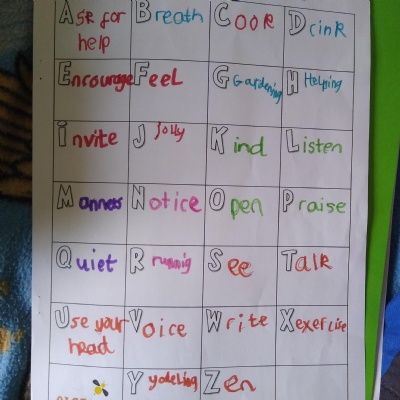 Ask for help
Breath
Cook
Drink
Encourage
Feel
G Gardening
H Helping
invite
J Jolly
Kind
Listen
Manners
Notice
Open
Praise
Quiet
R runnig
See
Talk
Use your head
Voice
Write
X exercise
Y yodeling
Zen